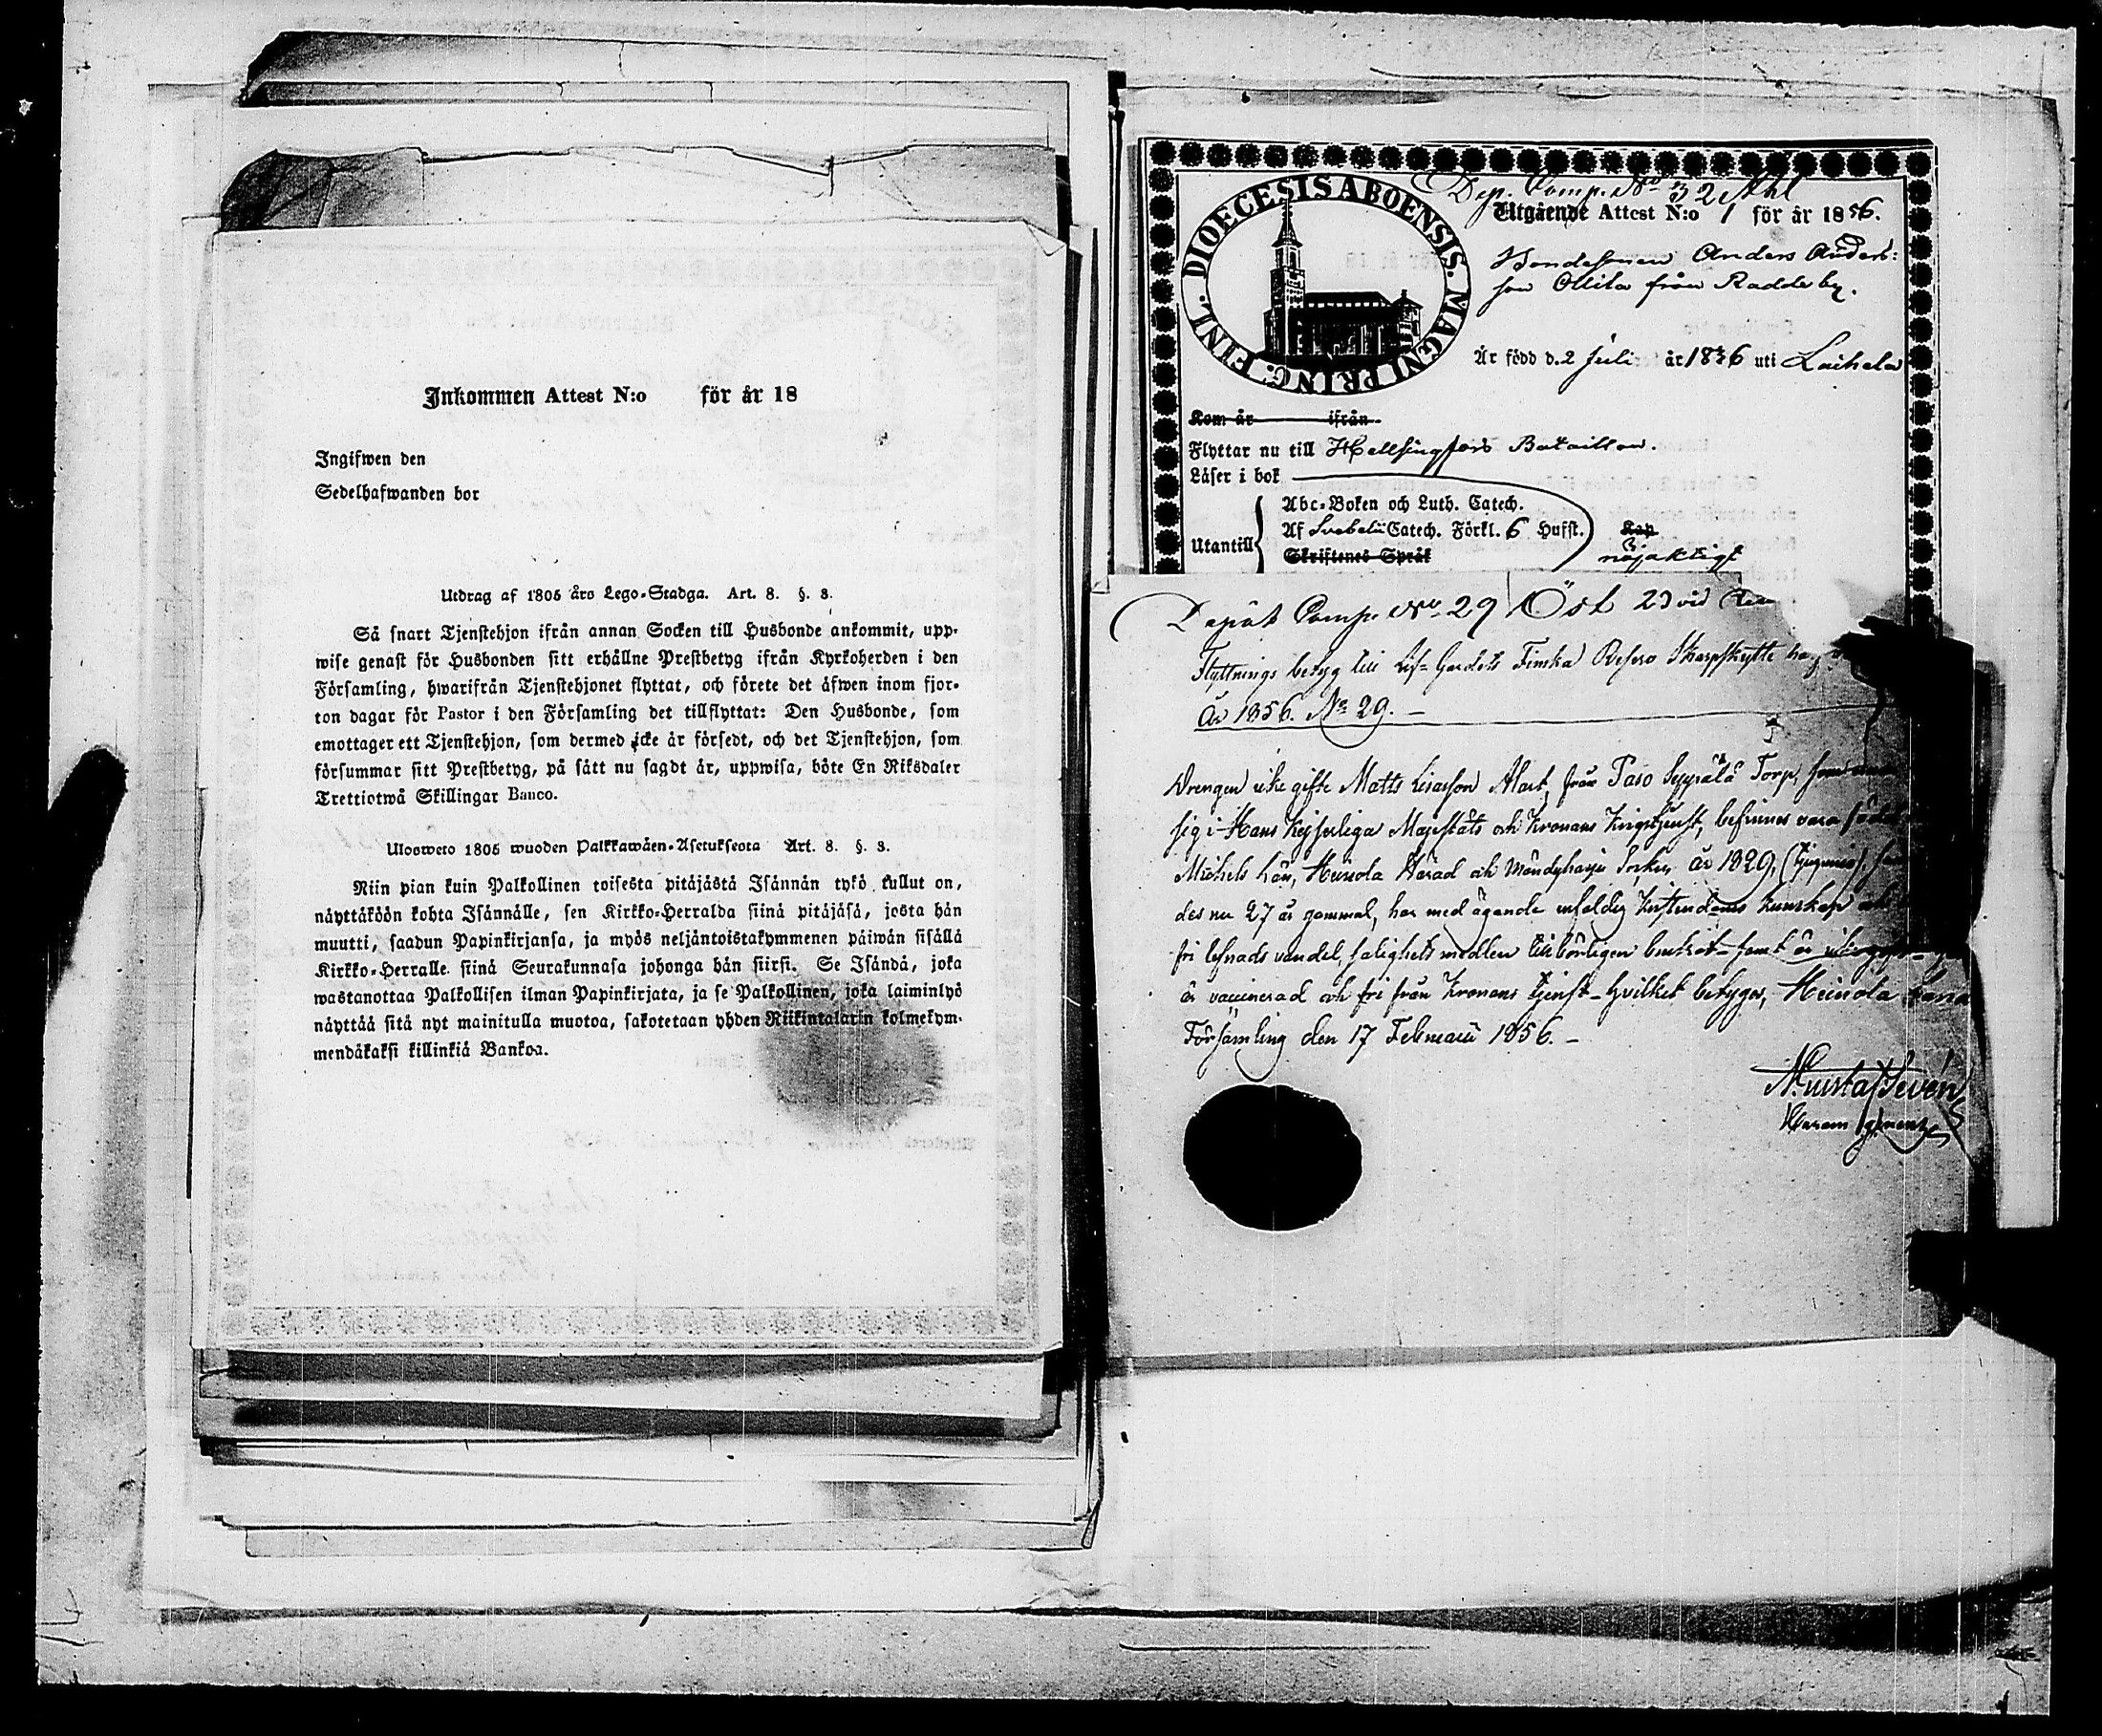 Inkommen Attest N:o för år 18
Ingifwen den
Sedelhafwanden bor
Utdrag af 1805 års Lego-Stadga. Art. 8. §. 8.
Så snart Tjenstehjon ifrån annan Socken till Husbonde ankommit, upp-
wise genast för Husbonden sitt erhållne Prestbetyg ifrån Kyrkoherden i den
Församling, hwarifrån Tjenstehjonet flyttat, och förete det äfwen inom fjor-
ton dagar för Pastor i den Församling det tillflyttat: Den Husbonde, som
emottager ett Tjenstehjon, som dermed icke är försedt, och det Tjenstehjon, som
försummar sitt Prestbetyg, på sätt nu sagdt är, uppwisa, böte En Riksdaler
Trettiotwå Skillingar Banco.
Ulosweto 1805 wuoden Palkkawäen-Asetuksesta Art. 8. §. 8.
Niin pian kuin Palkollinen toisesta pitäjästä Isännän tykö tullut on,
näyttäköön kohta Isännälle, sen Kirkko-Herralda siinä pitäjäsä, josta hän
muutti, saadun Papinkirjansa, ja myös neljäntoistakymmenen päiwän sisällä
Kirkko-Herralle siinä Seurakunnasa johonga hän siirsi. Se Isändä, joka
wastanottaa Palkollisen ilman Papinkirjata, ja se Palkollinen, joka laiminlyö
näyttää sitä nyt mainitulla muotoa, sakotetaan yhden Riikintalarin kolmekym-
mendäkaksi killinkiä Bankoa.
Dep. Comp. No 32
DIOECESIS ABOENSIS. MAGNI PRINC. FINL.
Utgående Attest N:o 1 för år 1856.
Bondesonen Anders Anders-
son Ollila från Radde by.
Är född d. 2 Juli år 1836 uti Laihela
Kom år ifrån
Flyttar nu till Helsingfors Bataillon.
Läser i bok
Abc-Boken och Luth. Catech.
Utantill Af Svebelii Catech. Förkl. 6 Hufst. Kap
Skriftenes Språk nöjaktigt
Depôt Comp. No 29 Öst 23 vid
Flyttnings betyg till Lif-Gardets Finska Reserv Skarpskytte
År 1856. No 29.
Drengen icke gifte Matts Lisasson Mart, från Paso Seppälä Torp, som
sig i Hans Kejserliga Majestäts och Kronans Krigstjenst, befinnes vara född
Michels Län, Heinola Härad och Mändyharju Socken år 1829, (tjugunio)
des nu 27 år gammal, har med ägande enfaldig Kristendoms kunskap och
fri lefnads vandel, salighets medlen tillbörligen brukat samt är
är vaccinerad och fri från Kronans tjenst hvilket betygar, Heinola
Församling den 17 Februarii 1856.